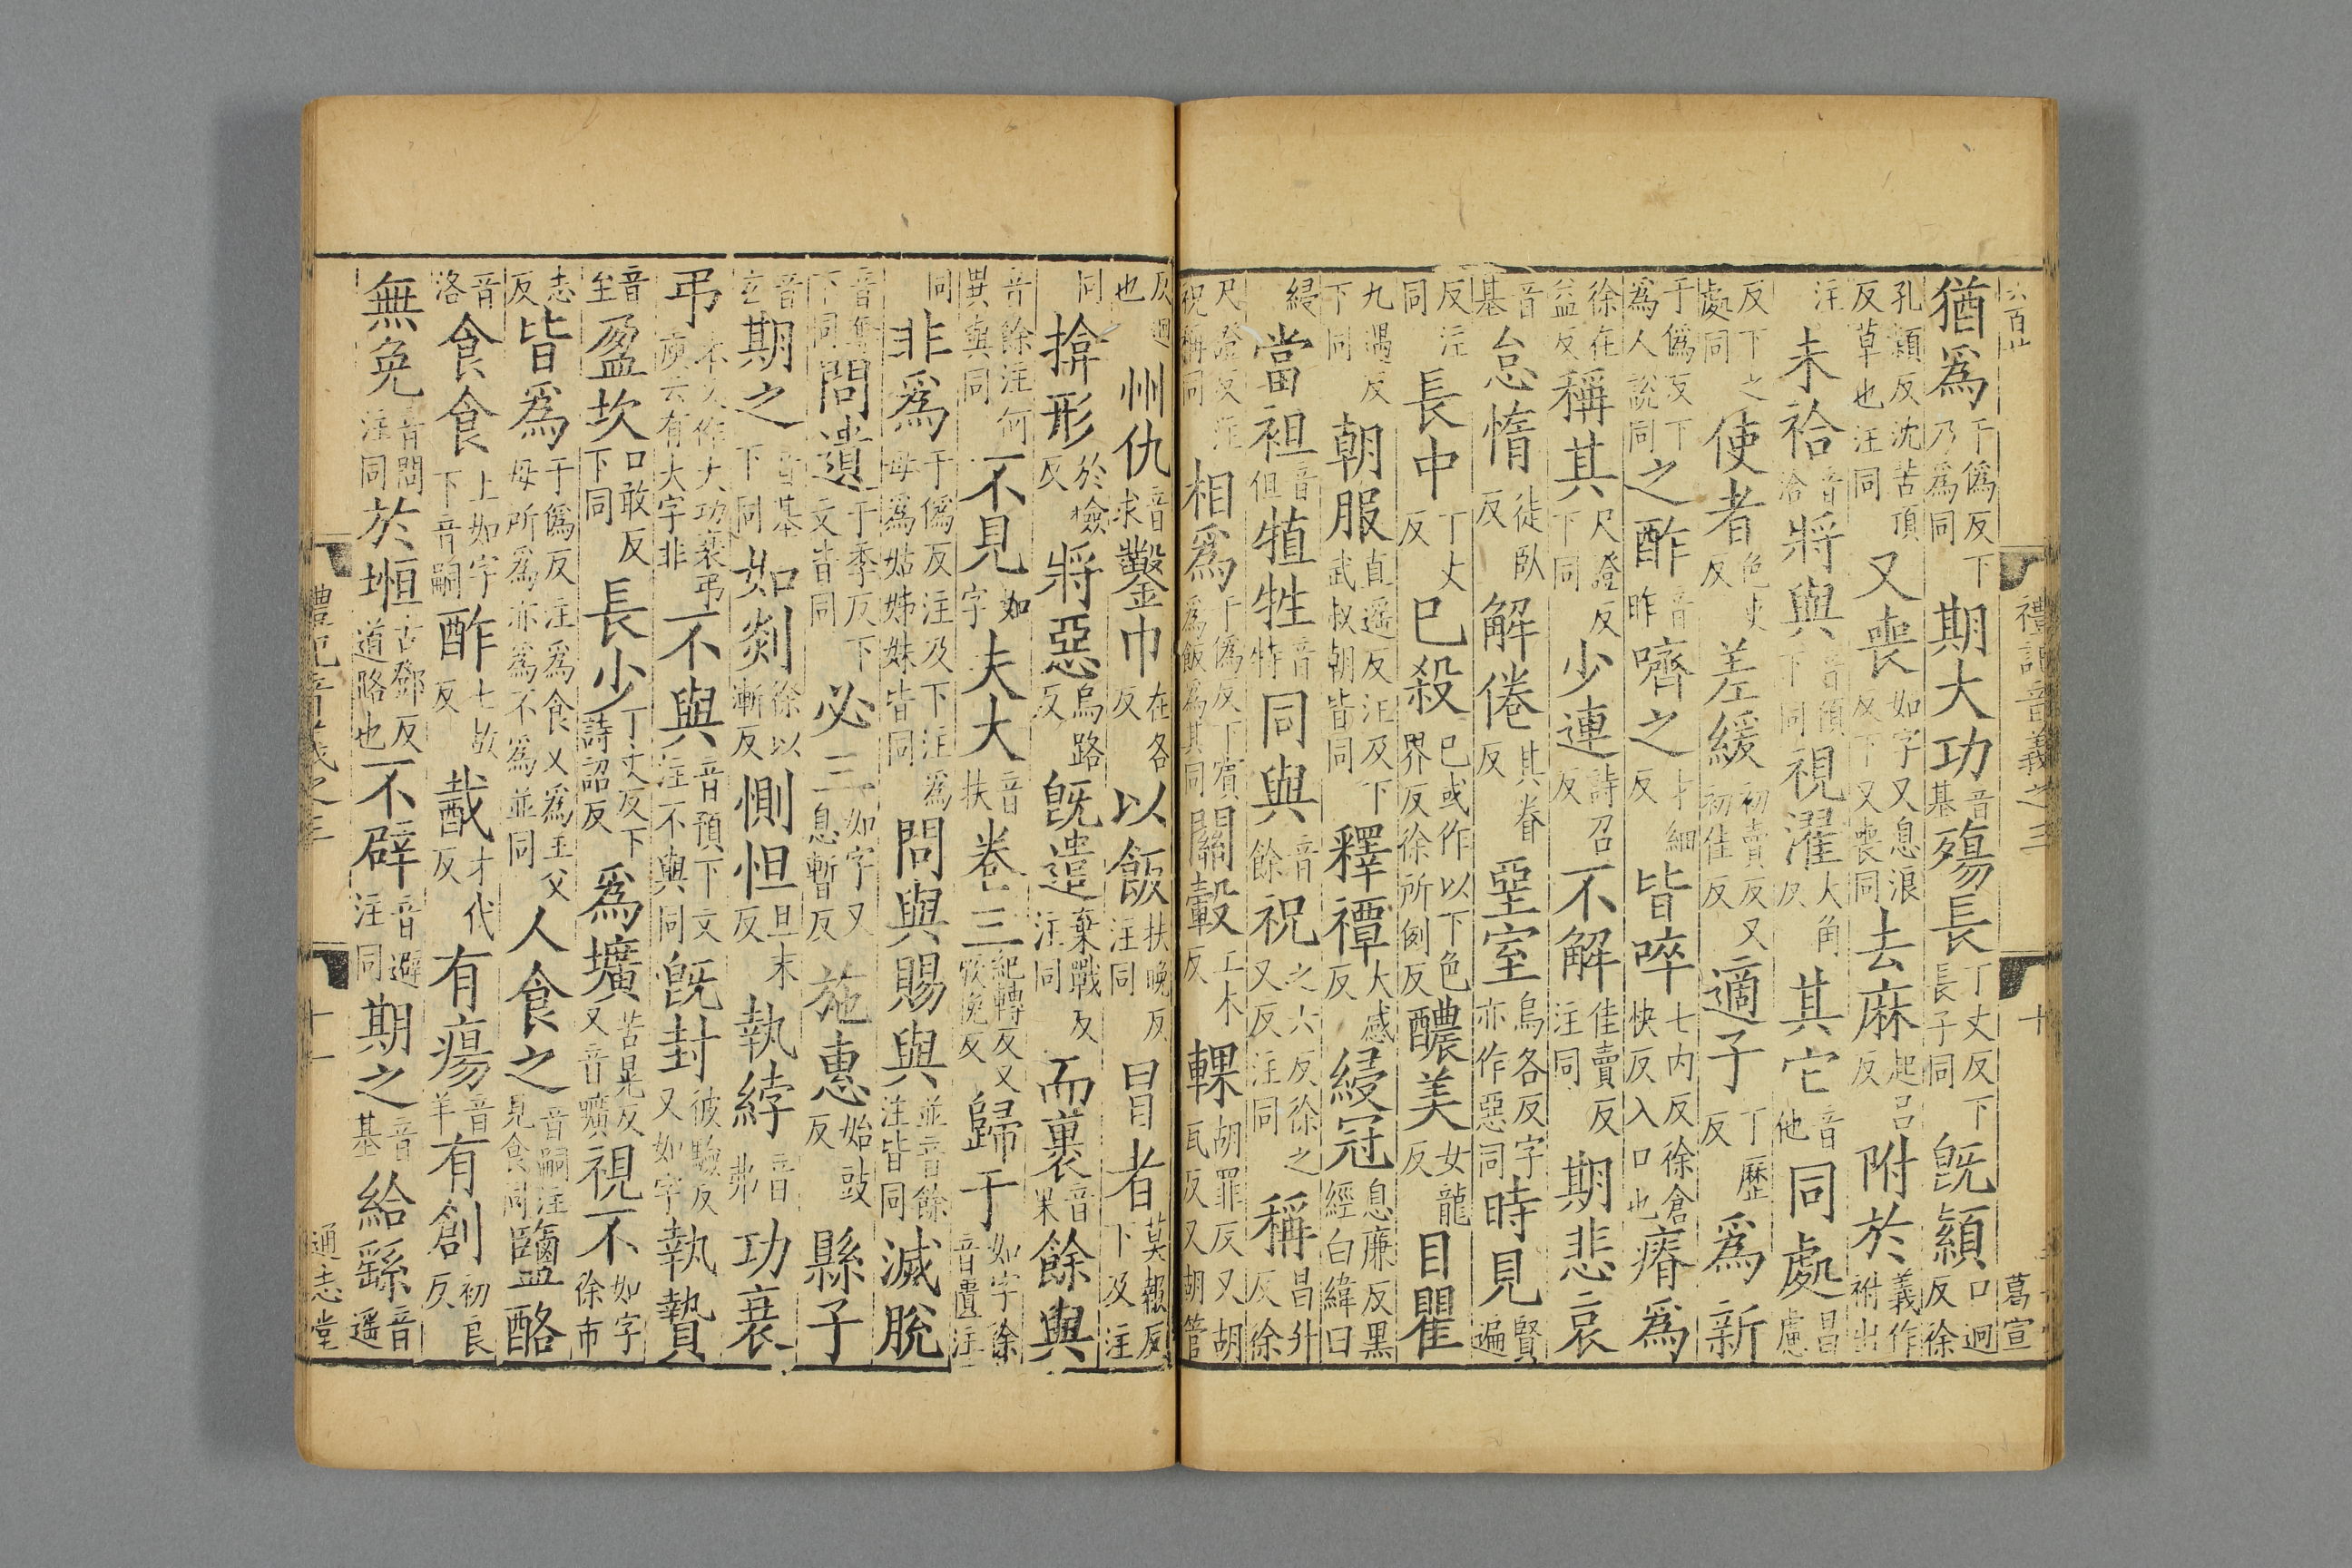 猶爲于僞反下乃爲同期大功音基殤長丁丈反下長子同旣潁口迥反徐
孔潁反沈苦頂反草也注同又喪如字又息浪反下又喪同去麻起呂反附於義作祔出
注未祫音洽將與音預下同視濯大角反其它音他同處昌慮
反下之處同使者色吏反差緩初賣反又初佳反適子丁歷反爲新
于僞反下爲人說同之酢音昨嚌之才細反皆啐七內反徐倉快反入口也瘠爲
徐在益反稱其尺證反下同少連詩召反不解佳賣反注同期悲哀
音基怠惰徒臥反解倦其眷反堊室烏各反字亦作惡同時見賢遍
反注同長中丁丈反已殺已或作以下色界反徐所例反醲美女龍反目瞿
九遇反下同朝服直遥反注及下武叔朝皆同釋禫大感反綅冠息廉反黑經白緯曰
綅當袒音但犆牲音特同與音餘祝之六反徐之又反注同稱昌升反徐
尺證反注祝稱同相爲于僞反下賓爲飯爲其同關轂工木反輠胡罪反又胡瓦反又胡管
反迴也州仇音求鑿巾在各反以飯扶晚反注同冒者莫報反下及注
同揜形於檢反將惡烏路反旣遣棄戰反注同而裹音果餘與
音餘注何異與同不見如字夫大音扶卷三紀轉反又厥免反歸于如字徐音匱注
同非爲于僞反注及下注爲母爲姑姊妹皆同問與賜與並音餘注皆同滅脫
音奪下同問遺于季反下文皆同必三如字又息暫反施惠始豉反縣子
音玄期之音基下同如剡徐以漸反惻怛旦末反執綍音弗功衰
弔本又作大功衰弔庾云有大字非不與音預下文注不與同旣封彼驗反又如字執贄
音至盈坎口敢反下同長少丁丈反下詩詔反爲壙苦晃反又音曠視不如字徐市
志反皆爲于僞反注爲食又爲王父母所爲亦爲不爲並同人食之音嗣注見食同鹽酪
音洛食食上如字下音嗣酢七故反酨才代反有瘍音羊有創初良反
無免音問注同於堩古鄧反道路也不辟音避注同期之音基給繇音遥
禮記音義之三
十
葛宣
禮記音義之三
十一
通志堂